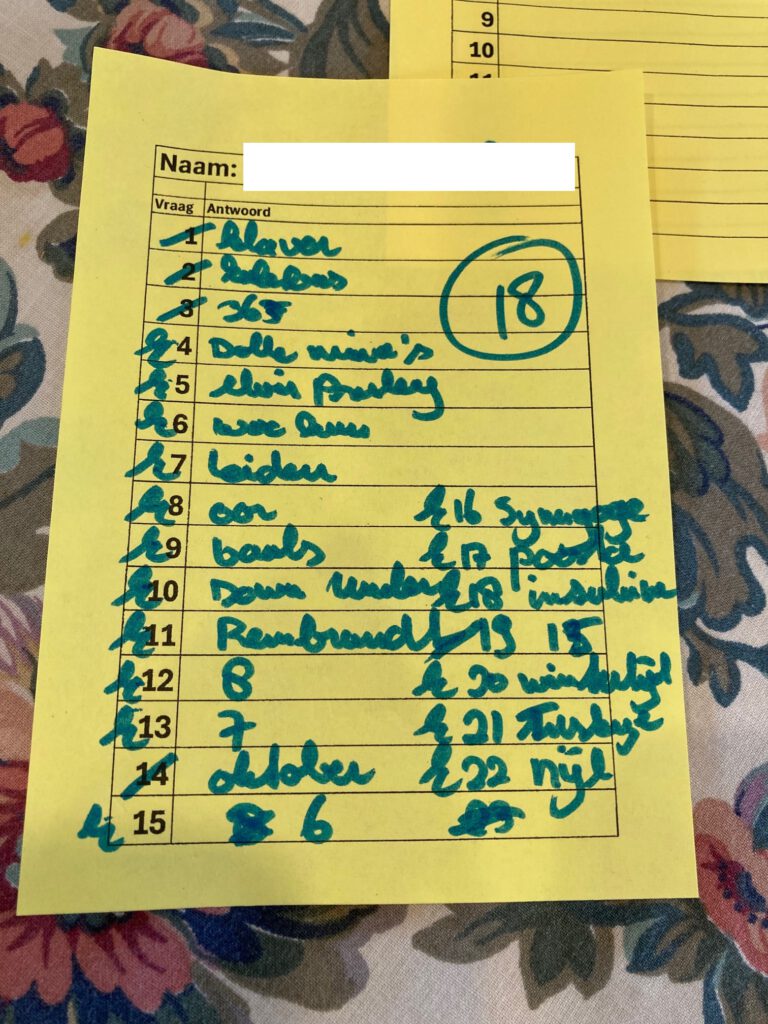 9
10
11
Naam:
Vraag Antwoord
1 klaver
2
3 365
4 Dolle mina's
5 elvis Presley
6
7 Leiden
8 oor
9 banks
10 Down Under
11 Rembrandt
12 8
13 7
14 oktober
15 6
18
16 Synagoge
17
18 insuline
19 15
20 wintertijd
21 Turkije
22 Nijl